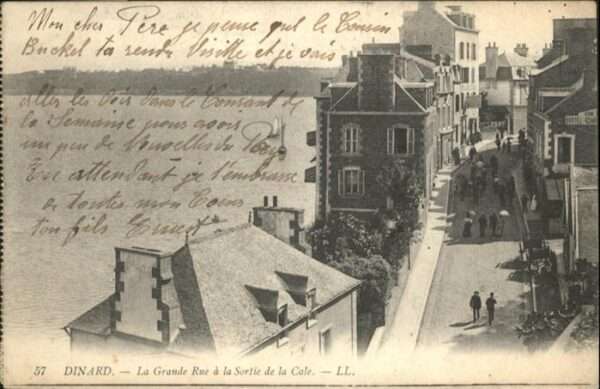 Mon cher Père je pense que le Cousin
Buckel t'a rendu visite et je vais
aller les voir dans le Courant de
la Semaine pour avoir
un peu de nouvelles du Pays
En attendant je t'embrasse
de toutes mon Coeur
ton fils Ernest
57 DINARD. — La Grande Rue à la Sortie de la Cale. — LL.